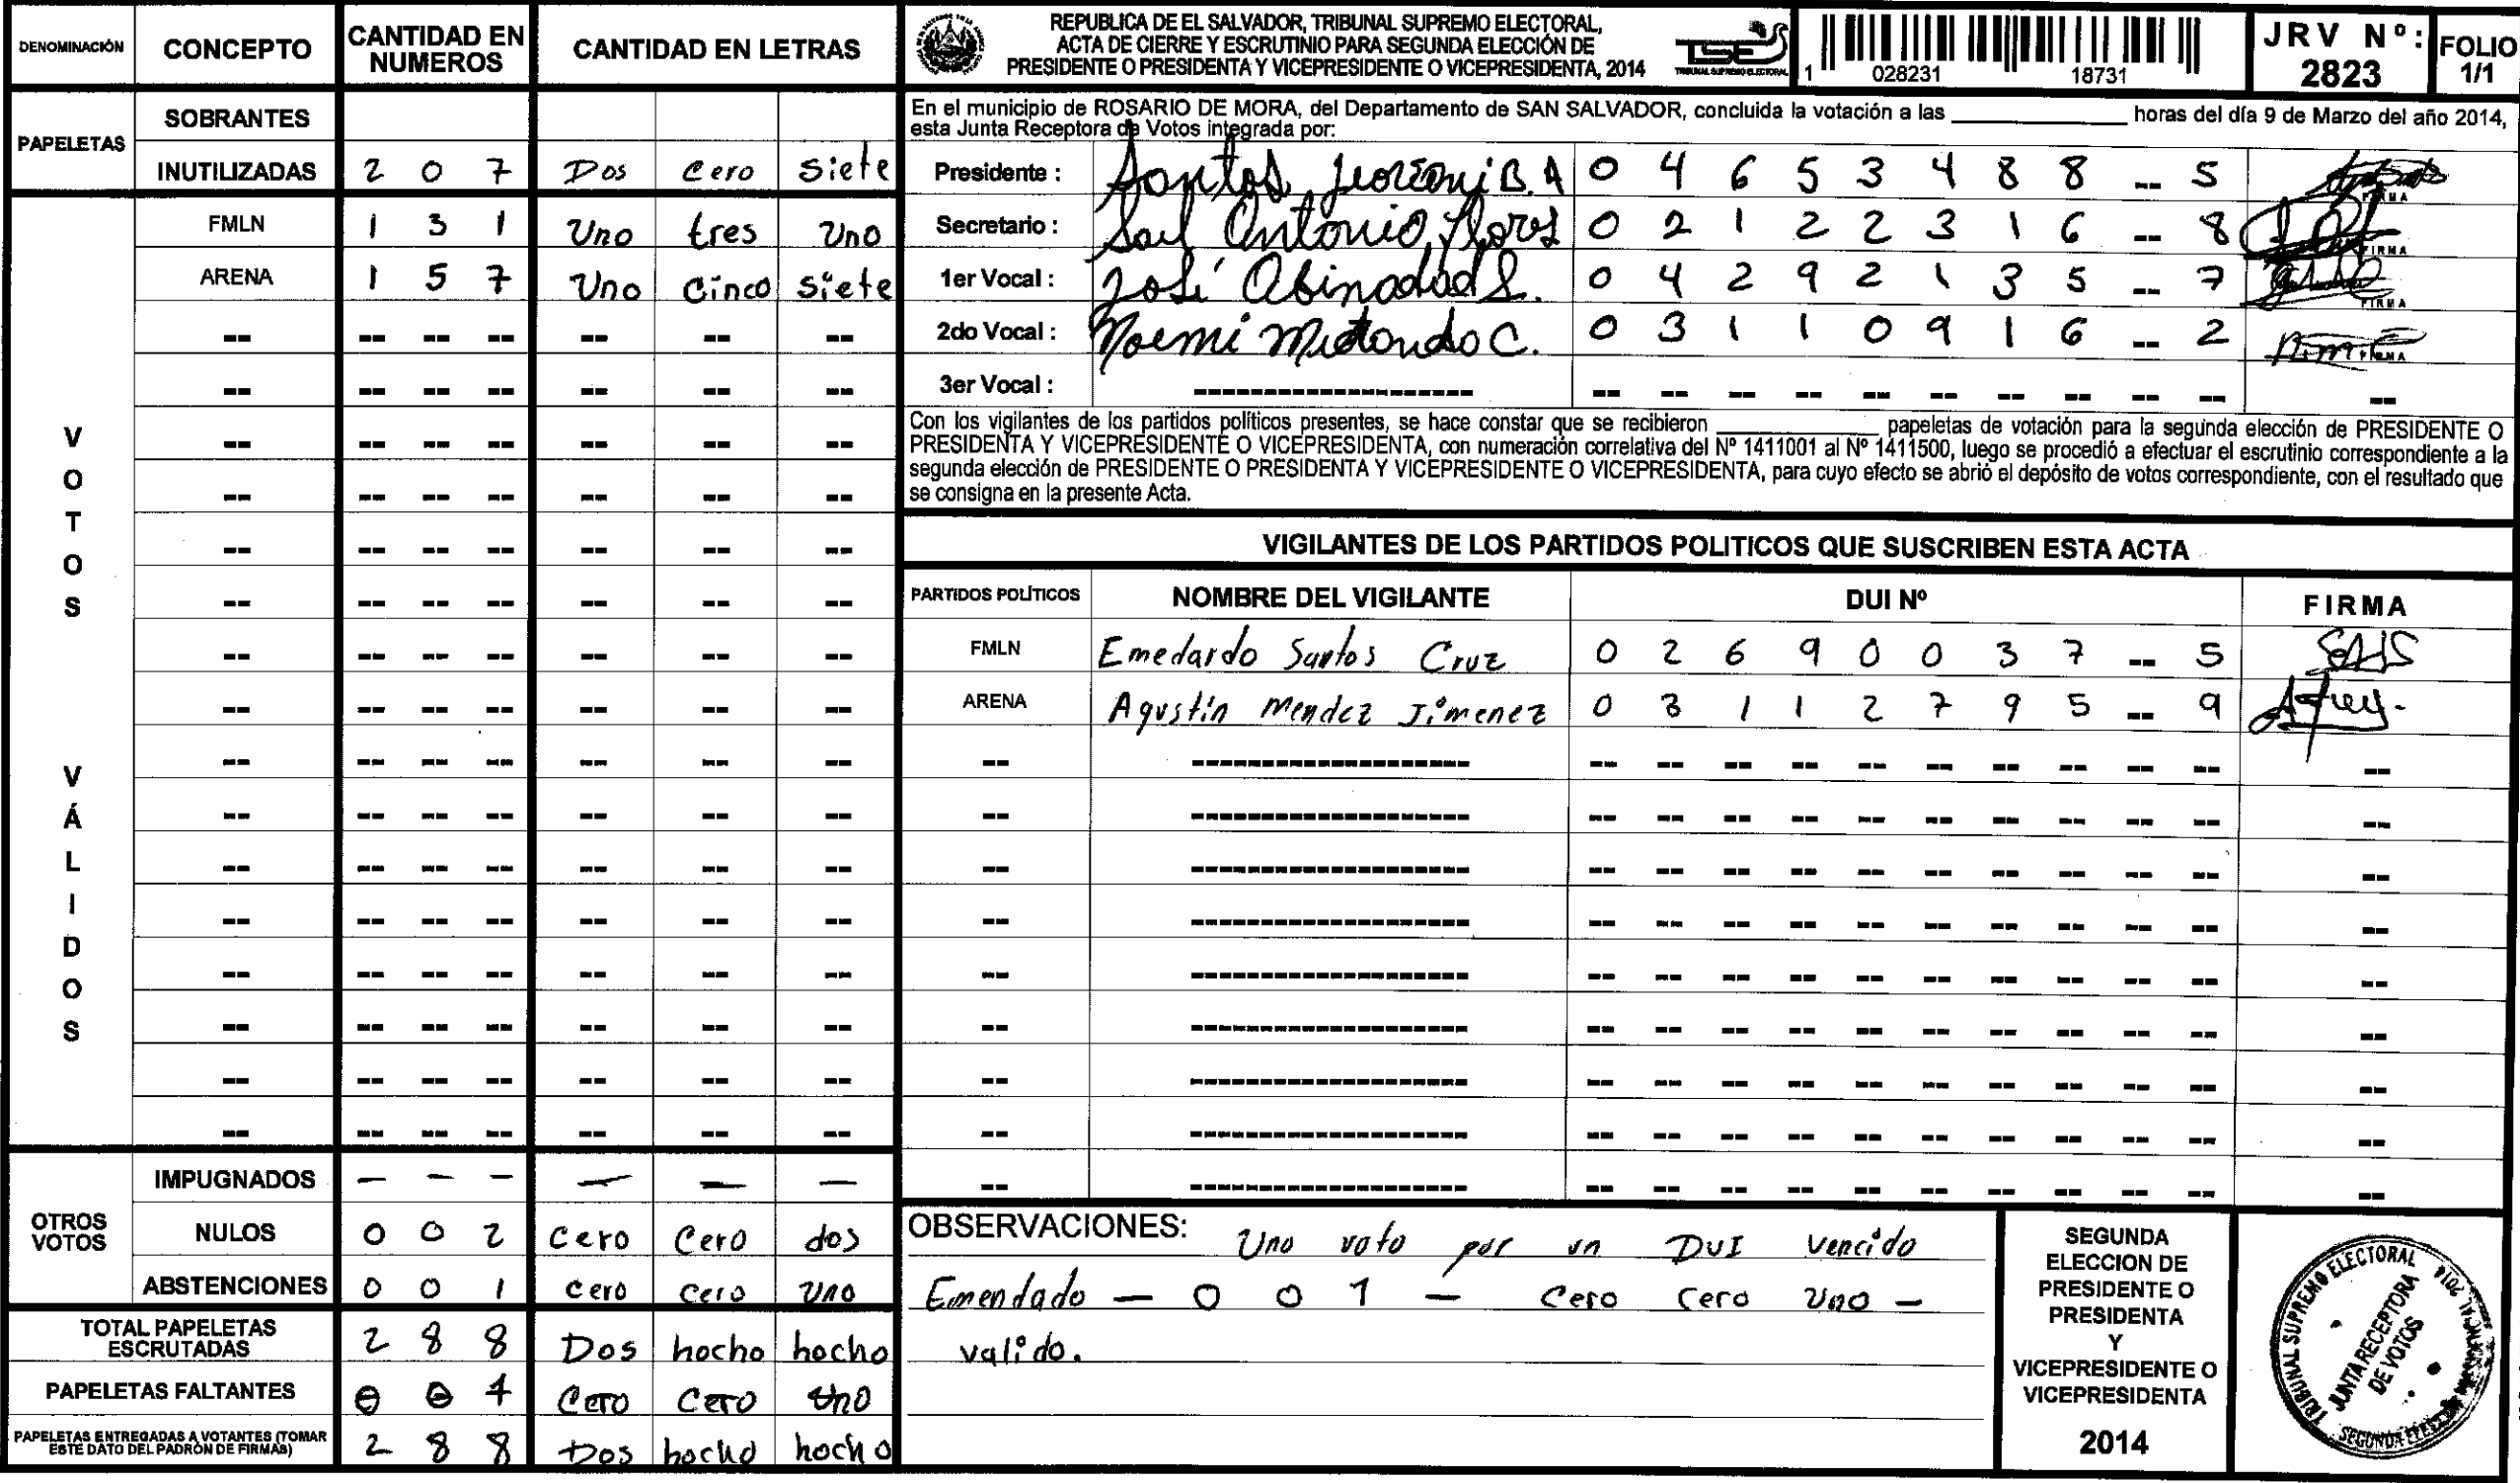 DENOMINACIÓN CONCEPTO CANTIDAD EN NUMEROS CANTIDAD EN LETRAS
PAPELETAS
SOBRANTES
INUTILIZADAS 2 0 7 Dos Cero Siete
VOTOS VÁLIDOS
FMLN 1 3 1 Uno tres Uno
ARENA 1 5 7 Uno Cinco Siete
OTROS VOTOS
IMPUGNADOS — — — — — —
NULOS 0 0 2 Cero Cero dos
ABSTENCIONES 0 0 1 Cero Cero Uno
TOTAL PAPELETAS ESCRUTADAS 2 8 8 Dos hocho hocho
PAPELETAS FALTANTES 0 0 1 Cero Cero Uno
PAPELETAS ENTREGADAS A VOTANTES (TOMAR ESTE DATO DEL PADRÓN DE FIRMAS) 2 8 8 Dos hocho hocho
REPUBLICA DE EL SALVADOR, TRIBUNAL SUPREMO ELECTORAL,
ACTA DE CIERRE Y ESCRUTINIO PARA SEGUNDA ELECCIÓN DE
PRESIDENTE O PRESIDENTA Y VICEPRESIDENTE O VICEPRESIDENTA, 2014
TSE
TRIBUNAL SUPREMO ELECTORAL
1 028231 18731
JRV Nº: 2823
FOLIO 1/1
En el municipio de ROSARIO DE MORA, del Departamento de SAN SALVADOR, concluida la votación a las ____ horas del día 9 de Marzo del año 2014,
esta Junta Receptora de Votos integrada por:
Presidente : Santos B. A 0 4 6 5 3 4 8 8 -- 5 FIRMA
Secretario : Saul Antonio Flores 0 2 1 2 2 3 1 6 -- 8 FIRMA
1er Vocal : José Abinadad S. 0 4 2 9 2 1 3 5 -- 7 FIRMA
2do Vocal : Noemi C. 0 3 1 1 0 9 1 6 -- 2 FIRMA
3er Vocal :
Con los vigilantes de los partidos políticos presentes, se hace constar que se recibieron ____ papeletas de votación para la segunda elección de PRESIDENTE O
PRESIDENTA Y VICEPRESIDENTE O VICEPRESIDENTA, con numeración correlativa del Nº 1411001 al Nº 1411500, luego se procedió a efectuar el escrutinio correspondiente a la
segunda elección de PRESIDENTE O PRESIDENTA Y VICEPRESIDENTE O VICEPRESIDENTA, para cuyo efecto se abrió el depósito de votos correspondiente, con el resultado que
se consigna en la presente Acta.
VIGILANTES DE LOS PARTIDOS POLITICOS QUE SUSCRIBEN ESTA ACTA
PARTIDOS POLÍTICOS NOMBRE DEL VIGILANTE DUI Nº FIRMA
FMLN Emedardo Santos Cruz 0 2 6 9 0 0 3 7 -- 5
ARENA Agustín Mendez Jimenez 0 3 1 1 2 7 9 5 -- 9
OBSERVACIONES: Uno voto por un DUI Vencido
Emendado — 0 0 1 — Cero Cero Uno —
valido.
SEGUNDA
ELECCION DE
PRESIDENTE O
PRESIDENTA
Y
VICEPRESIDENTE O
VICEPRESIDENTA
2014
TRIBUNAL SUPREMO ELECTORAL
JUNTA RECEPTORA
DE VOTOS